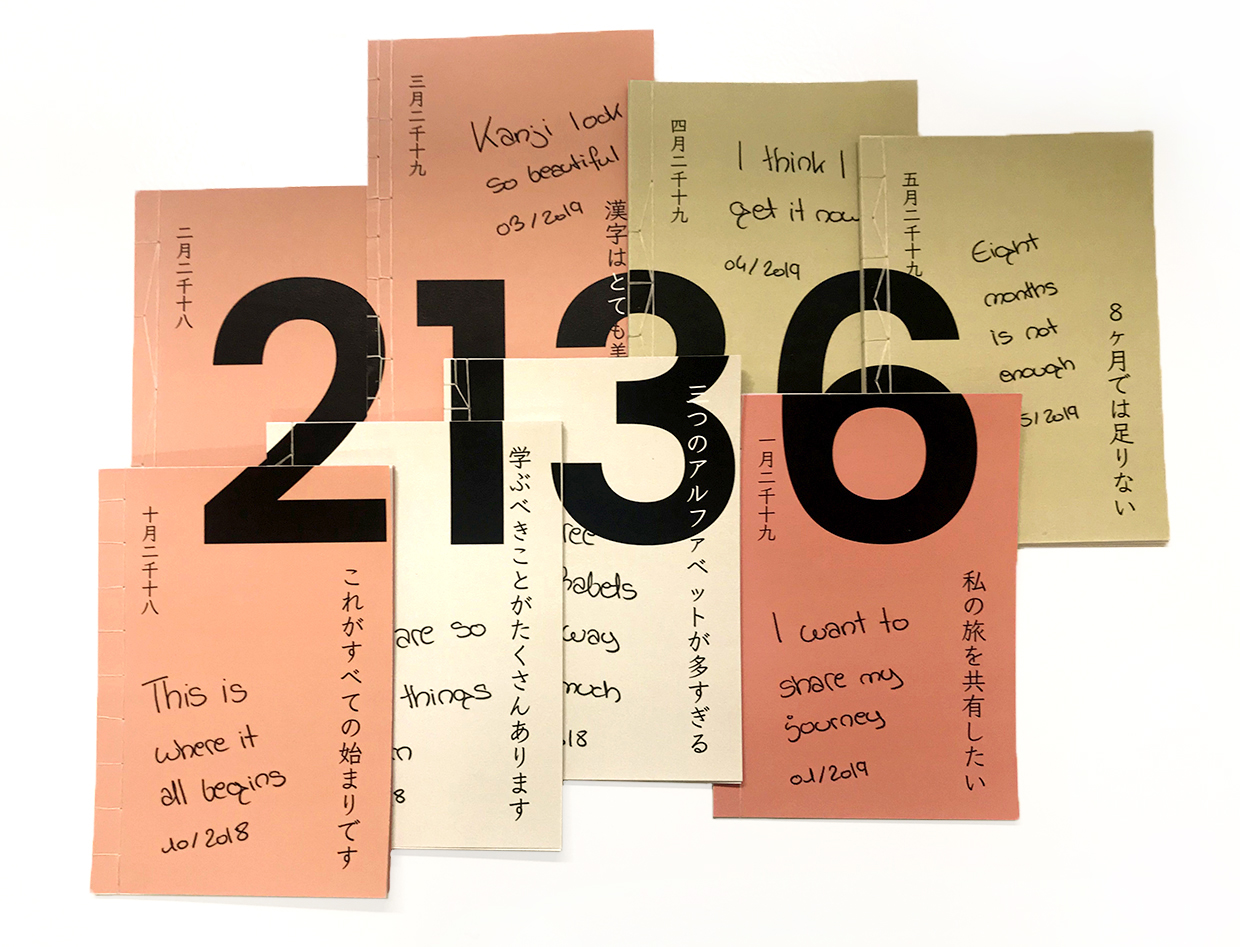 三月二千十九
Kanji look
so beautiful
03/2019
漢字はとても美
四月二千十九
I think I
get it now
04/2019
五月二千十九
Eight
months
is not
enough
5/2019
8ヶ月では足りない
二月二千十八
2136
三つのアルファベットが多すぎる
ree
habels
way
much
.18
学ぶべきことがたくさんあります
are so
things
n
8
一月二千十九
私の旅を共有したい
I want to
share my
journey
01/2019
十月二千十八
これがすべての始まりです
This is
where it
all begins
10/2018